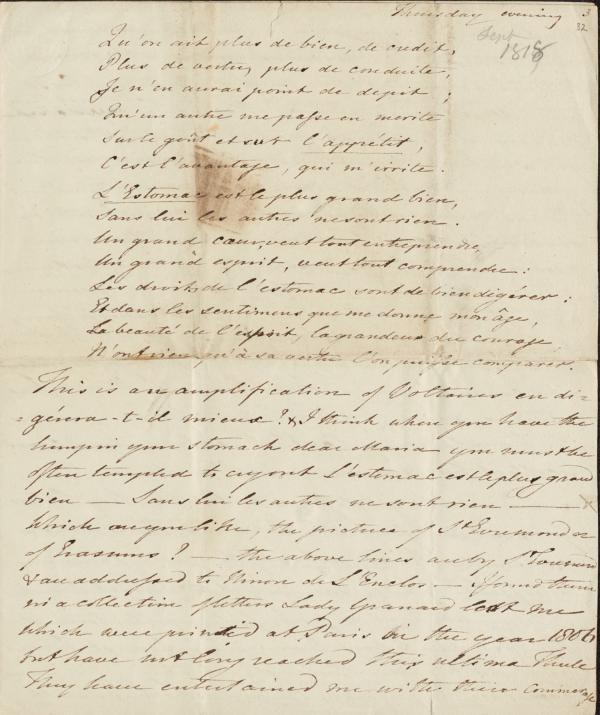 Thursday evening 3
32
Sept
1818
Qu'on ait plus de bien, de credit,
Plus de vertu, plus de conduite,
Je n'en aurai point de depit ;
Qu'un autre me passe en merite
Sur le goût et sur l'appétit,
C'est l'avantage, qui m'irrite.
L'Estomac est le plus grand bien,
Sans lui les autres ne sont rien.
Un grand cœur, veut tout entreprendre,
Un grand esprit, veut tout comprendre :
Les droits de l'estomac sont de bien digérer :
Et dans les sentimens que me donne mon âge,
La beauté de l'esprit, la grandeur du courage
N'ont rien, qu'à sa vertu l'on puisse comparer.
This is an amplification of Voltaires en di=
=gérera-t-il mieux? & I think when you have the
in your stomach dear Maria you must be
often tempted to cry out L'estomac est le plus grand
bien — Sans lui les autres ne sont rien —
Which do you like, the picture of St Evremond or
of Erasmus? — the above lines are by St Evremond
& are addressed to Ninon de L'Enclos — I found them
in a collection of letters Lady Granard lent me
which were printed at Paris in the year 1806
but have not long reached this ultima Thule
They have entertained me with their commerage